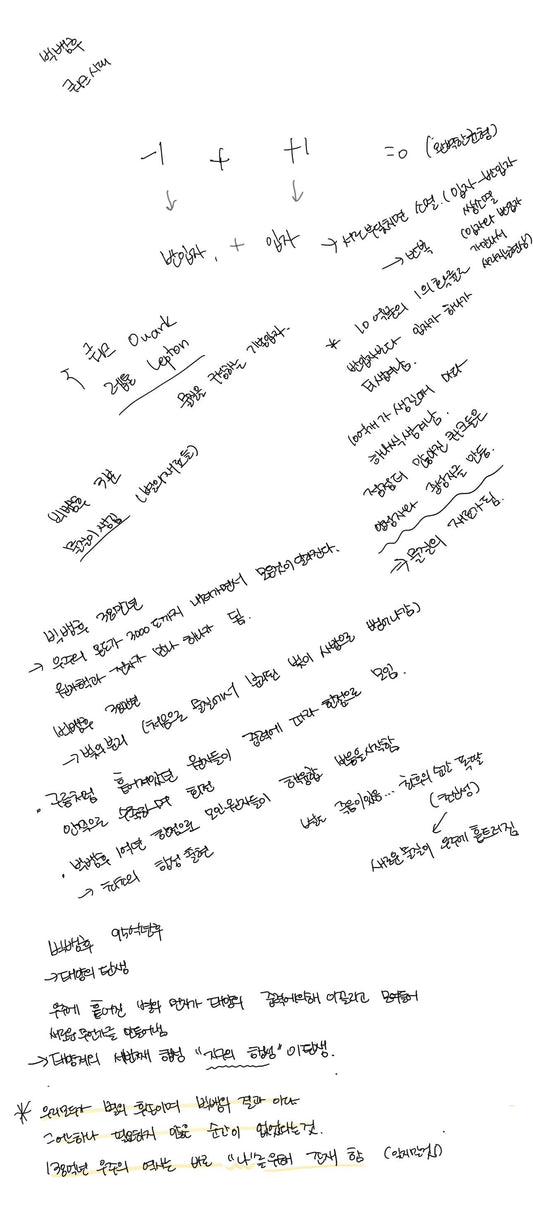 빅뱅후
쿼크시대
-1 + +1 =0 (완벽한균형)
↓ ↓
반입자. + 입자 → 서로부딪치면 소멸. (입자-반입자
쌍소멸
(입자와 반입자
가만나서
사라지는현상)
→ 반복
쿼크 Quark
렙톤 Lepton
물질을 구성하는 기본입자.
* 10억분의 1의확률로
반입자보다 입자가 하나가
더생겨남.
10억개가 생길때 마다
하나씩생겨남.
점점더 많아진 쿼크들은
양성자와 중성자를 만듬.
→ 물질의 재료가됨.
빅뱅후 3분
물질이생김 (별의재료들)
빅뱅후 38만년
→ 우주의 온도가 3000도까지 내려가면서 모든것이 달라진다.
원자핵과 전자가 만나 하나가 됨.
빅뱅후 38만년
→ 빛의분리 (처음으로 물질에서 분리된 빛이 사방으로 뻗어나감)
· 구름처럼 흩어져있던 원자들이 중력에 따라 한점으로 모임.
안쪽으로 수축하며 회전
· 빅뱅후 1억년 한점으로 모인원자들이 핵융합 반응을시작함
→ 최초의 항성 출현
별도 죽음이있음... 최후의순간 폭발
(초신성)
새로운 물질이 우주에 흩뜨러짐
빅뱅후 95억년후
→ 태양의 탄생
우주에 흩어진 별의 먼지가 태양의 중력에의해 이끌리고 모여들어
새로운무언가를 만들어냄
→ 태양계의 세번째 행성 "지구의 행성"이탄생.
* 우리모두가 별의 후손이며 빅뱅의 결과 이다
그어느하나 필요하지 않은 순간이 없었다는것.
138억년 우주의 역사는 바로 "나"를위해 존재 함 (잊지말것)